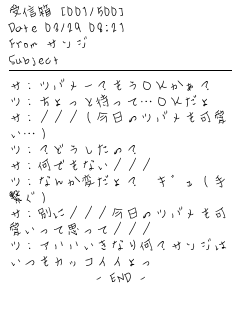 受信箱 [001/500]
Date 08/29 08:21
From サンジ
Subject
サ：ツバメーてもうOKかぁ?
ツ：ちょっと待って…OKだよ
サ：///（今日のツバメも可愛
い…）
ツ：てどうしたの?
サ：何でもない///
ツ：なんか変だよ?　ギュ（手
繋ぐ）
サ：別に///今日のツバメも可
愛いって思って///
ツ：アハハいきなり何?サンジは
いつもカッコイイよっ
- END -